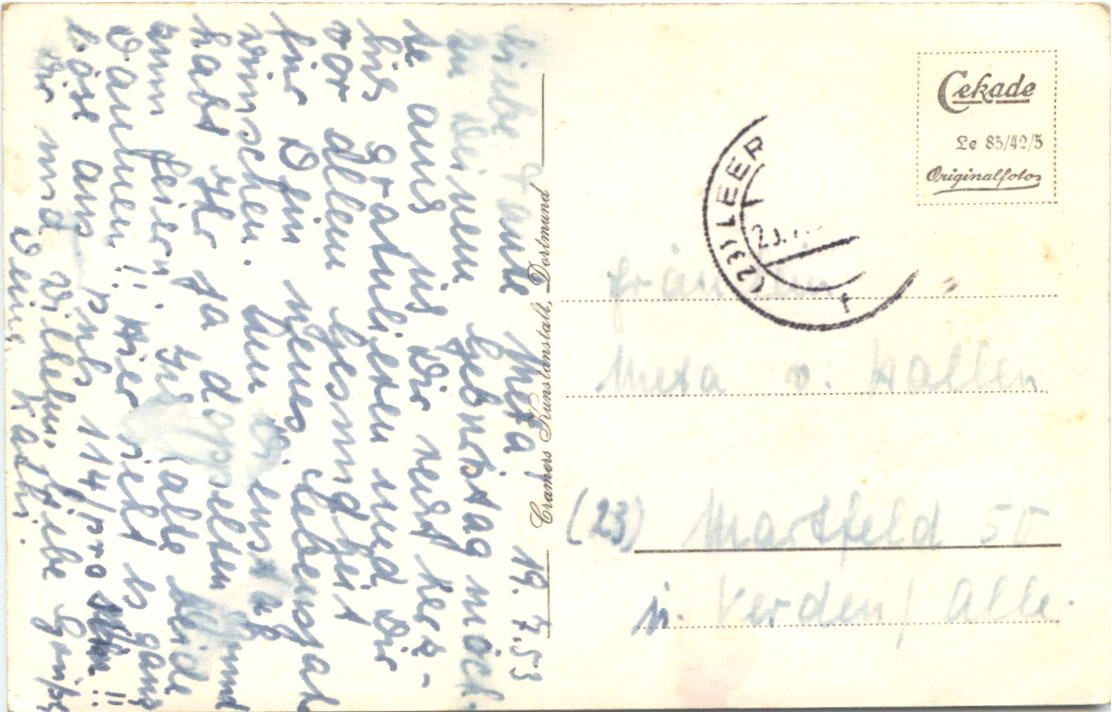 Liebe Tante Meta, 19.7.53
zu Deinem Geburtstag möch-
te auch ich Dir recht herz-
lich gratulieren und Dir
vor allem Gesundheit
für Dein neues Lebensjahr
wünschen. Am Dienstag
habt Ihr ja doppelten Grund
zum feiern!! Ich halte beide
Daumen!! Hier es ganz
böse aus, puls 114/pro Min!!
Dir und Wilhelm liebe Grüße
Deine Kathi.
Cramers Kunstanstalt, Dortmund
Cekade
Le 85/42/5
Originalfoto
(23) LEER
f
Fräulein
Meta v. Hallen
(23) Martfeld 50
n. Verden/Alle.